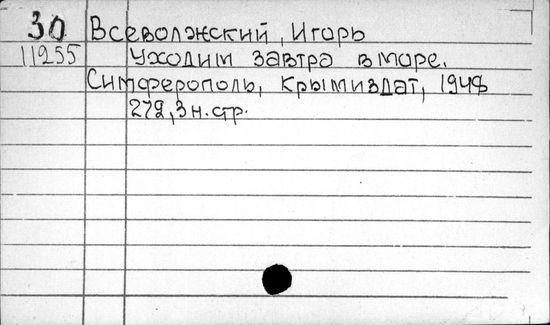 30 Всеволжский, Игорь
11255 Уходим завтра в море.
Симферополь, Крымиздат, 1948
272, 3 н. стр.